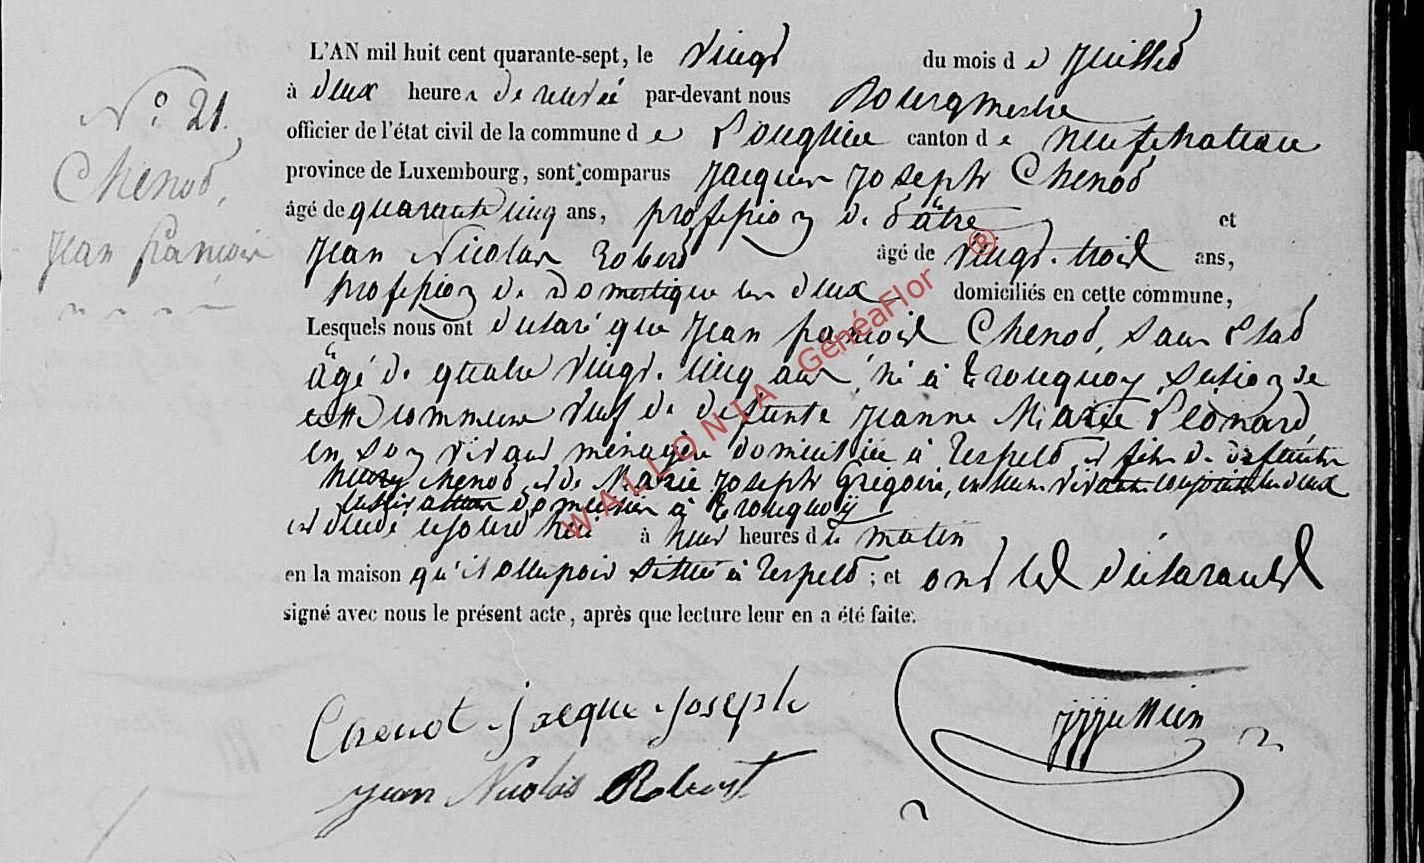 L'AN mil huit cent quarante-sept, le vingt du mois de juillet
à deux heures de relevée par-devant nous Bourgmestre
officier de l'état civil de la commune de Longlier canton de neufchateau
province de Luxembourg, sont comparus Jacques Joseph Chenot
âgé de quarante cinq ans, profession de pâtre et
Jean Nicolas Robert âgé de vingt-trois ans,
profession de Domestique les deux domiciliés en cette commune,
Lesquels nous ont declaré que Jean françois Chenot, sans état
âgé de quatre vingt-cinq ans, né à Tronquoy, section de
cette commune veuf de defunte Jeanne Marie Léonard,
en son vivant ménagère domiciliée à Respelt et fils de defunts
henry chenot et de Marie Joseph Grégoire, en leur vivant conjoints les deux
cultivateurs domiciliés à Tronquoy
est décédé ajourd'hui à heures du matin
en la maison qu'il occupoit située à Respelt ; et ont les déclarants
signé avec nous le présent acte, après que lecture leur en a été faite.
N° 21.
Chenot,
Jean françois
Chenot Jacque Joseph
Jean Nicolas Robert
WALLONIA GenéaFlor ®